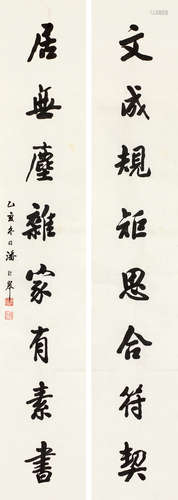 文成規矩思合符契
居無塵雜家有素書
乙亥冬日潘齡皋